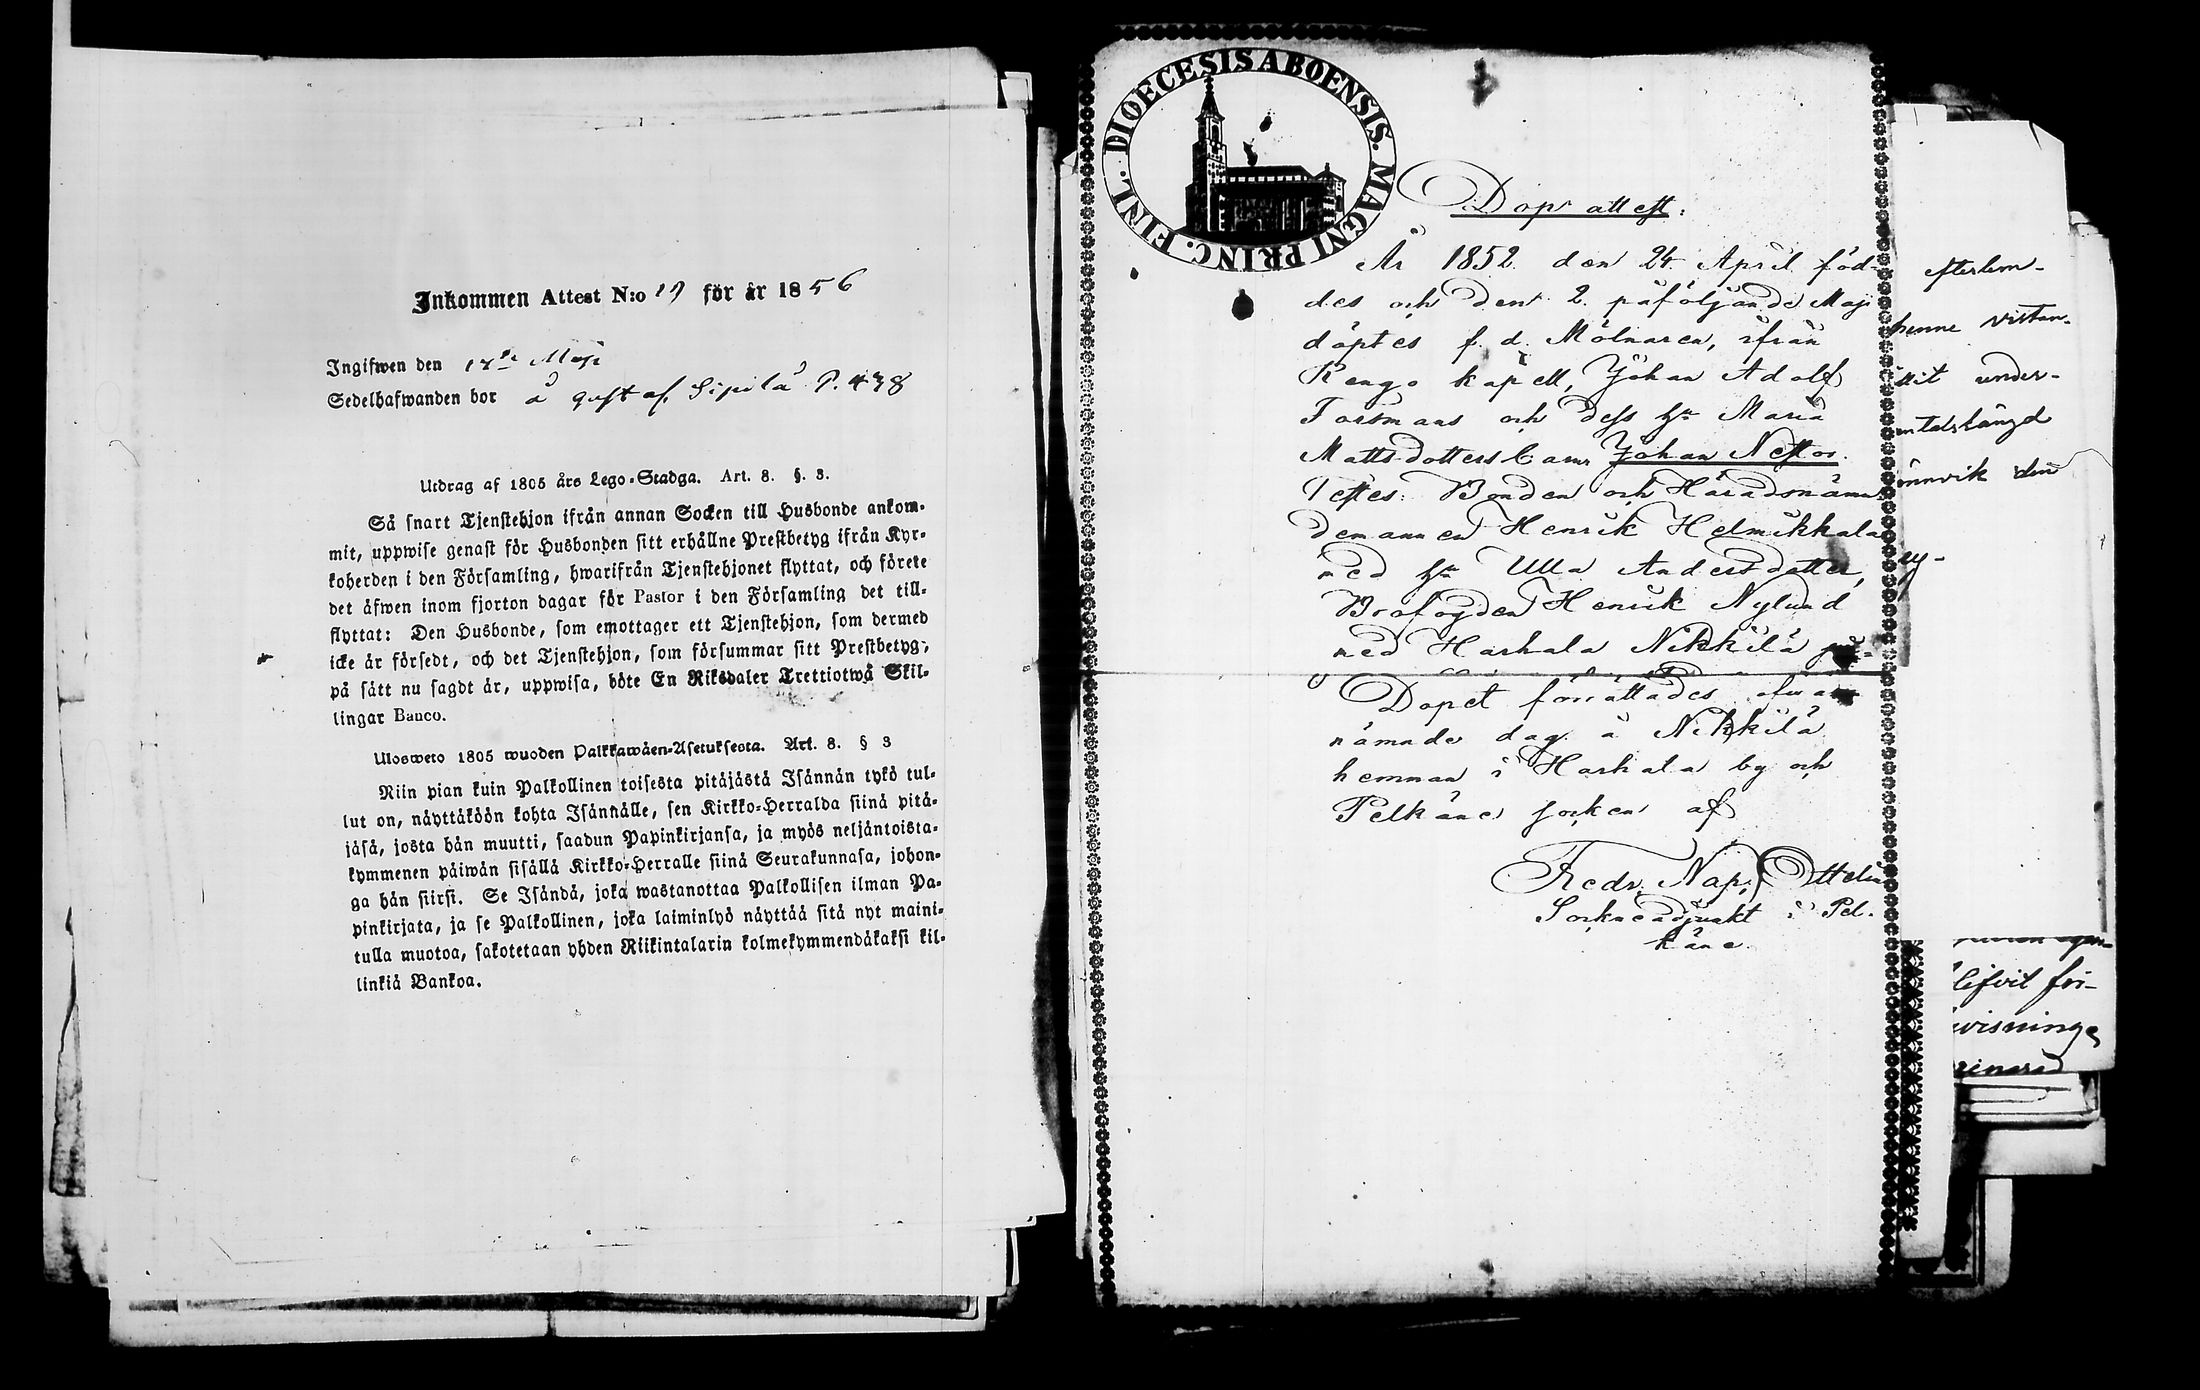 Inkommen Attest N:o 19 för år 1856
Ingifwen den 17de Maji
Sedelhafwanden bor å Gustaf Sipilä P. 438
Utdrag af 1805 års Lego-Stadga. Art. 8. §. 3.
Så snart Tjenstehjon ifrån annan Socken till Husbonde ankom-
mit, uppwise genast för Husbonden sitt erhållne Prestbetyg ifrån Kyr-
koherden i den Församling, hwarifrån Tjenstehjonet flyttat, och förete
det äfwen inom fjorton dagar för Pastor i den Församling det till-
flyttat: Den Husbonde, som emottager ett Tjenstehjon, som dermed
icke är försedt, och det Tjenstehjon, som försummar sitt Prestbetyg,
på sätt nu sagdt är, uppwisa, böte En Riksdaler Trettiotwå Skil-
lingar Banco.
Ulosweto 1805 wuoden Palkkawäen-Asetuksesta. Art. 8. § 3
Niin pian kuin Palkollinen toisesta pitäjästä Isännän tykö tul-
lut on, näyttäköön kohta Isännälle, sen Kirkko-Herralda siinä pitä-
jäsä, josta hän muutti, saadun Papinkirjansa, ja myös neljäntoista-
kymmenen päiwän sisällä Kirkko-Herralle siinä Seurakunnasa, johon-
ga hän siirsi. Se Isändä, joka wastanottaa Palkollisen ilman Pa-
pinkirjata, ja se Palkollinen, joka laiminlyö näyttää sitä nyt maini-
tulla muotoa, sakotetaan yhden Riikintalarin kolmekymmendäkaksi kil-
linkiä Bankoa.
DIOECESIS ABOENSIS. MAGNI PRINC. FINL.
Dopsattest:
År 1852 den 24 April föd-
des och den 2 påföljande Maji
döptes f. d. Mölnaren, ifrån
Kengo kapell, Johan Adolf
Forsmans och dess hu Maria
Mattsdotters barn Johan Nestor.
Testes: Bonden och Häradsnämn-
demannen Henrik Helmikkala
med hu Ulla Andersdotter,
Brofogden Henrik Nylund
med Harhala Nikkilä
Dopet förrättades ofwan-
nämnde dag å Nikkilä
hemman i Harhala by och
Pelkäne socken af
Fredr. Nap. Ottelin
Sockneadjunkt i Pel-
käne.
efterlem-
henne vistan-
under-
den
visninge